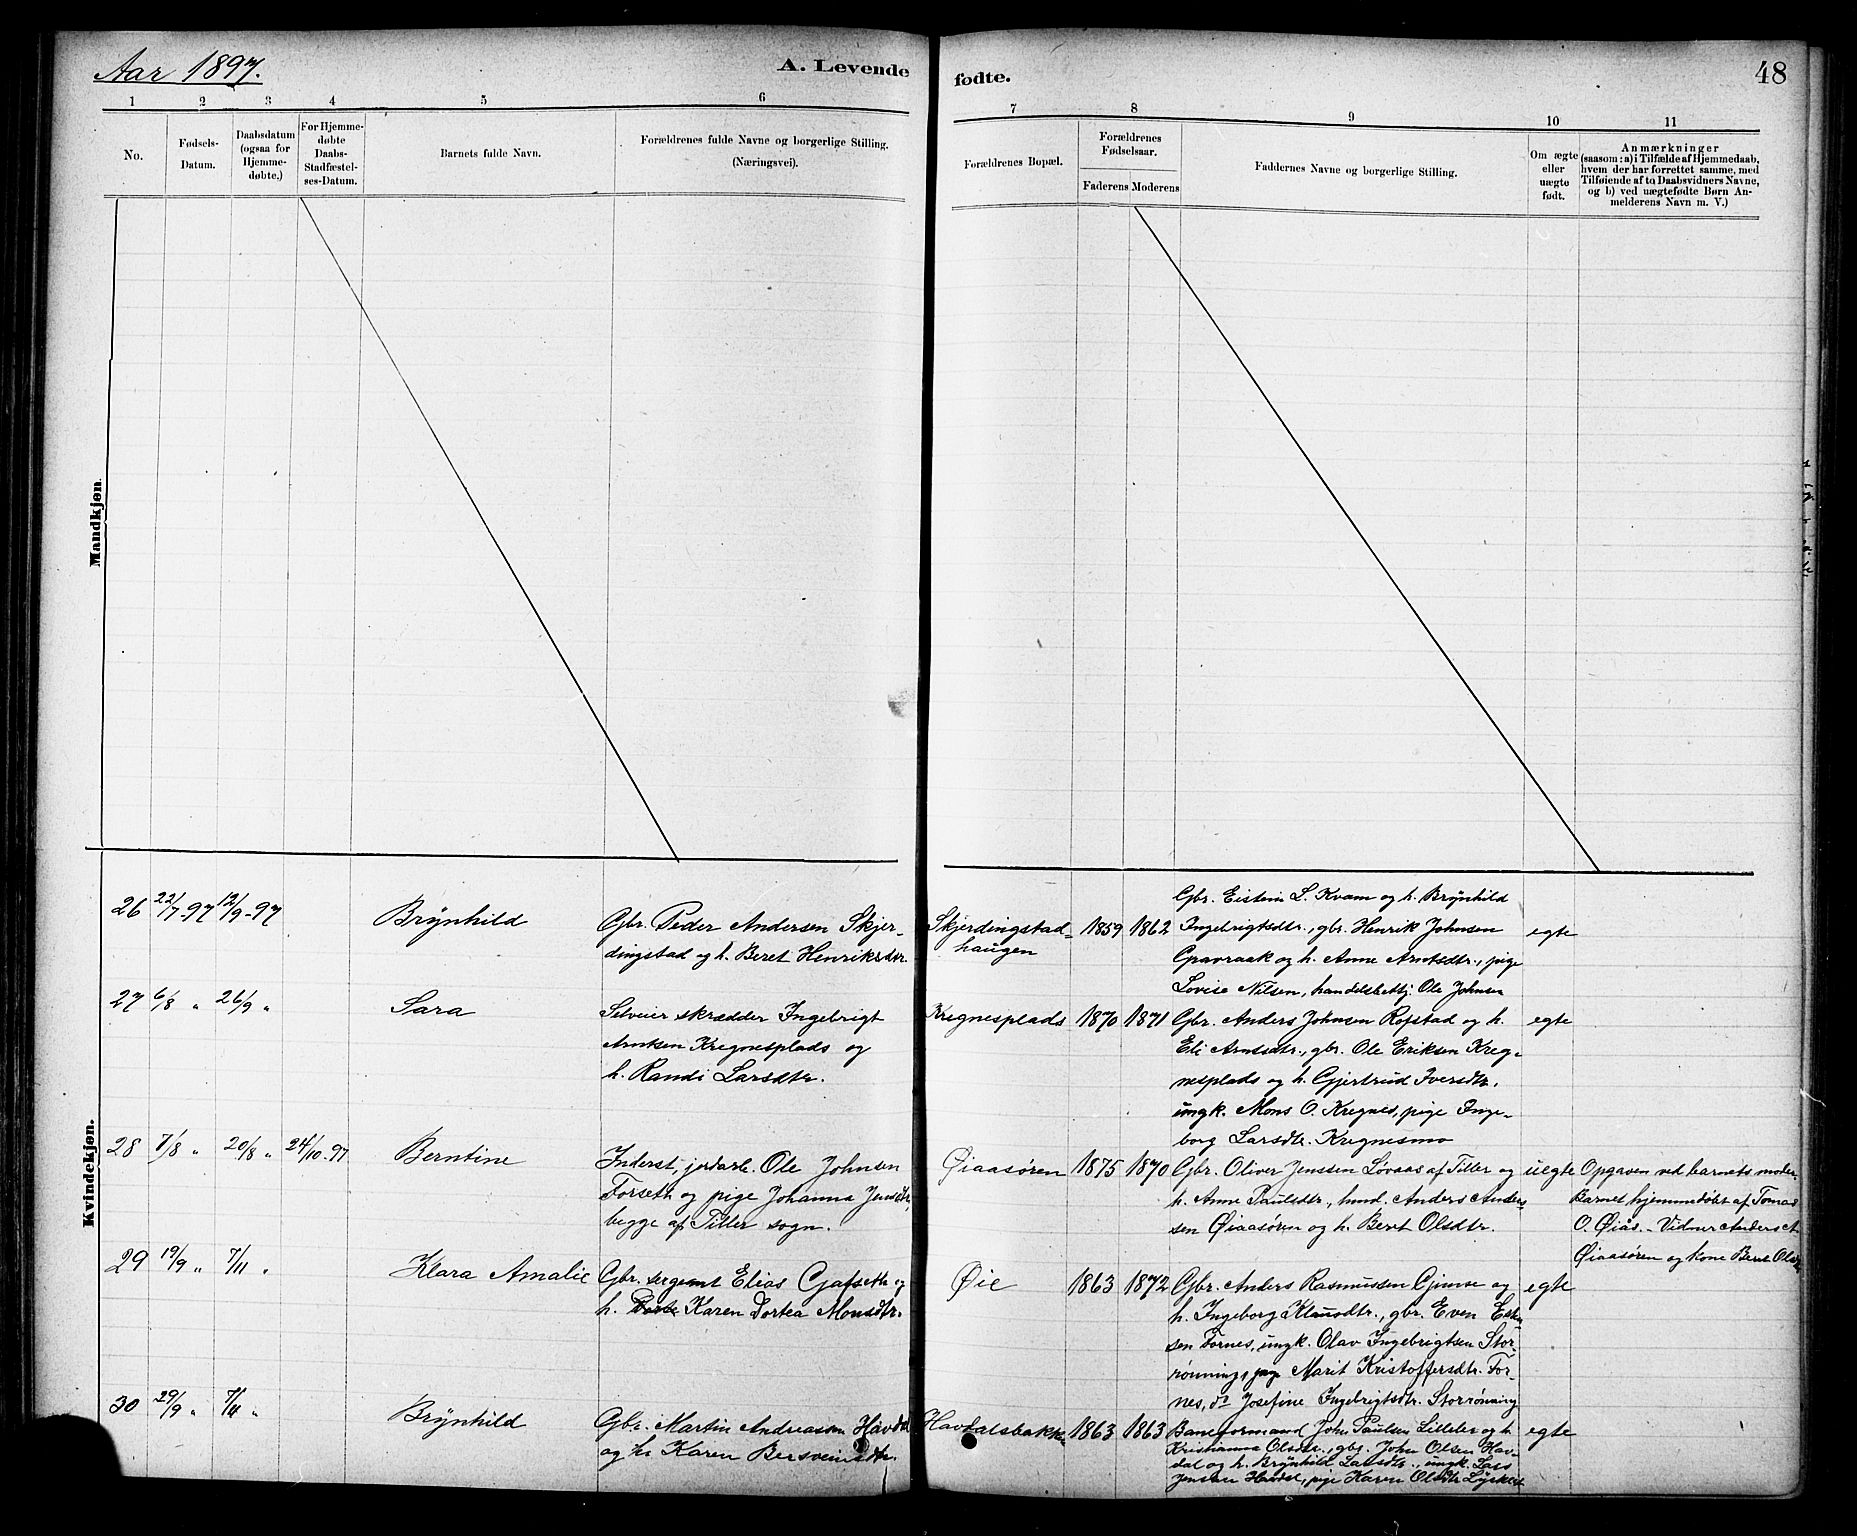 Aar 1897.
A. Levende fødte.
48
1 2 3 4 5 6 7 8 9 10 11
No.
Fødsels-
Datum.
Daabsdatum
(ogsaa for
Hjemme-
døbte.)
For Hjemme-
døbte
Daabs-
Stadfæstel-
ses-Datum.
Barnets fulde Navn.
Forældrenes fulde Navne og borgerlige Stilling.
(Næringsvei).
Forældrenes Bopæl.
Forældrenes
Fødselsaar.
Faderens Moderens
Faddernes Navne og borgerlige Stilling.
Om ægte
eller
uægte
født.
Anmærkninger
(saasom: a) i Tilfælde af Hjemmedaab,
hvem der har forrettet samme, med
Tilføiende af to Daabsvidners Navne,
og b) ved uægtefødte Børn An-
melderens Navn m. V.)
Mandkjøn.
Kvindekjøn.
26 22/7-97 12/9-97
Brynhild
Gbr. Peder Andersen Skjer-
dingstad og h. Beret Henriksdtr.
Skjerdingstad-
haugen
1859 1862
Gbr. Eistein L. Kvam og h. Brynhild
Ingebrigtsdtr., gbr. Henrik Johnsen
Gravraak og h. Anne Arntsdtr., pige
Lovise Nilsen, handelsbetj. Ole Johnsen
egte
27 6/8 " 26/9 "
Sara
Selveier skrædder Ingebrigt
Arntsen Kregnesplads og
h. Randi Larsdtr.
Kregnesplads
1870 1871
Gbr. Anders Johnsen Rofstad og h.
Eli Arntsdtr., gbr. Ole Eriksen Kreg-
nesplads og h. Gjertrud Iversdtr.
ungk. Mons O. Kregnes, pige Inge-
borg Larsdtr. Kregnesmo
egte
28 7/8 " 20/8 " 24/10-97
Berntine
Inderst, jordarb. Ole Johnsen
Forseth og pige Johanna Jensdtr,
begge af Tiller sogn.
Øiaasøren
1875 1870
Gbr. Oliver Jenssen Løvaas af Tiller og
h. Anne Paulsdtr, hmd. Anders Ander-
sen Øiaasøren og h. Beret Olsdtr.
uegte
Opgaven ved barnets moder.
Barnet hjemmedøbt af Tomas
O. Øiås. - Vidner Anders A.
Øiaasøren og kone Beret Olsdtr
29 19/9 " 7/11 "
Klara Amalie
Gbr. sergeant Elias Gjafseth og
h. Karen Dortea Monsdtr.
Øie
1863 1872
Gbr. Anders Rasmussen Gimse og
h. Ingeborg Klausdtr., gbr. Even Esten-
sen Fornes, ungk. Olav Ingebrigtsen Stor-
rønning, pige Marit Kristoffersdtr. For-
nes, do Josefine Ingebrigtsdtr. Storrønning
egte
30 29/9 " 7/11 "
Brynhild
Gbr. Martin Andreassen Havdal
og h. Karen Bersveinsdtr.
Havdalsbakk.
1863 1863
Baneformand John Paulsen Lilleler og h.
Kristianna Olsdtr., gbr. John Olsen Hav-
dal og h. Brynhild Larsdtr., ungk. Lars
Jensen Havdal, pige Karen Olsdtr
egte